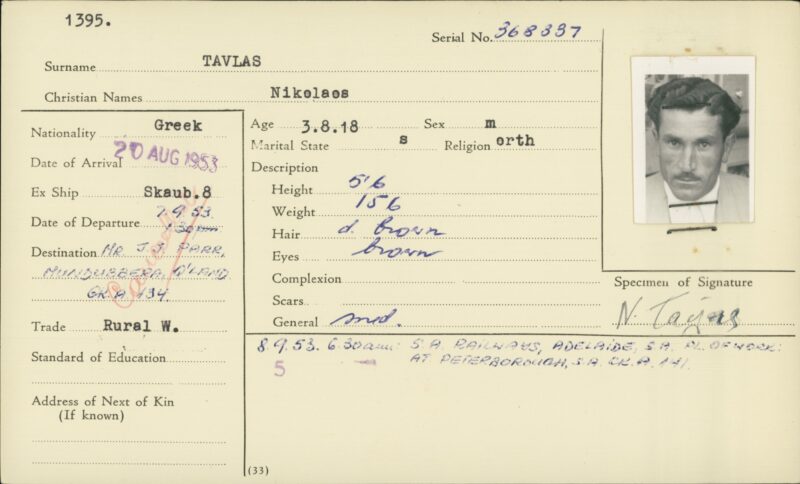 1395.
Serial No. 368337
Surname TAVLAS
Christian Names Nikolaos
Nationality Greek
Date of Arrival 20 AUG 1953
Ex Ship Skaub.8
Date of Departure 7.9.53.
Destination MR J.J. PARR,
MUNDUBBERA, Q'LAND.
GK.A 134.
Cancelled
Trade Rural W.
Standard of Education
Address of Next of Kin
(If known)
Age 3.8.18 Sex m
Marital State s Religion orth
Description
Height 5'6
Weight 156
Hair d. brown
Eyes brown
Complexion
Scars
General med.
Specimen of Signature
N.
8.9.53. 6.30am: S.A. RAILWAYS, ADELAIDE, S.A. PL. OF WORK:
AT PETERBOROUGH, S.A. GK.A. 141.
5
(33)